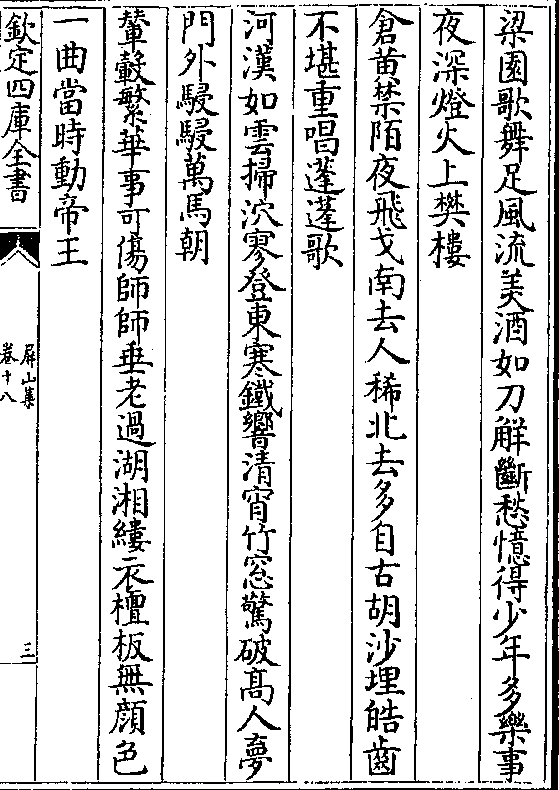 梁園歌舞足風流美酒如刀觧斷愁憶得少年多樂事
夜深燈火上樊樓
倉黄禁陌夜飛戈南去人稀北去多自古胡沙埋皓齒
不堪重唱蓬蓬歌
河漢如雲掃泬寥登東寒鐵響清宵竹窓驚破髙人夢
門外駸駸萬馬朝
輦轂繁華事可傷師師垂老過湖湘縷衣檀板無顔色
一曲當時動帝王
欽定四庫全書
屏山集
卷十八
三